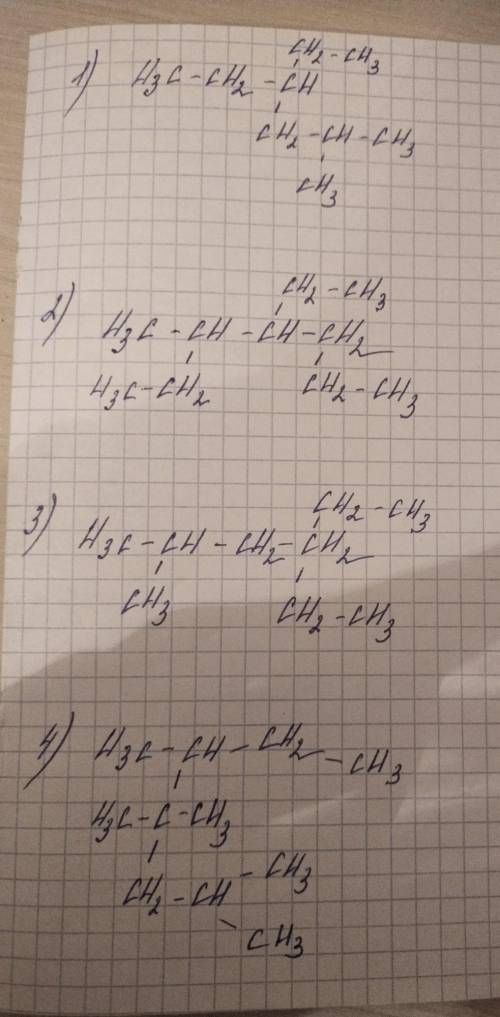 CH2-CH3
1) H3C-CH2-CH
CH2-CH-CH3
CH3
CH2-CH3
2) H3C-CH-CH-CH2
H3C-CH2 CH2-CH3
CH2-CH3
3) H3C-CH-CH2-CH2
CH3 CH2-CH3
4) H3C-CH-CH2-CH3
H3C-C-CH3
CH2-CH-CH3
CH3